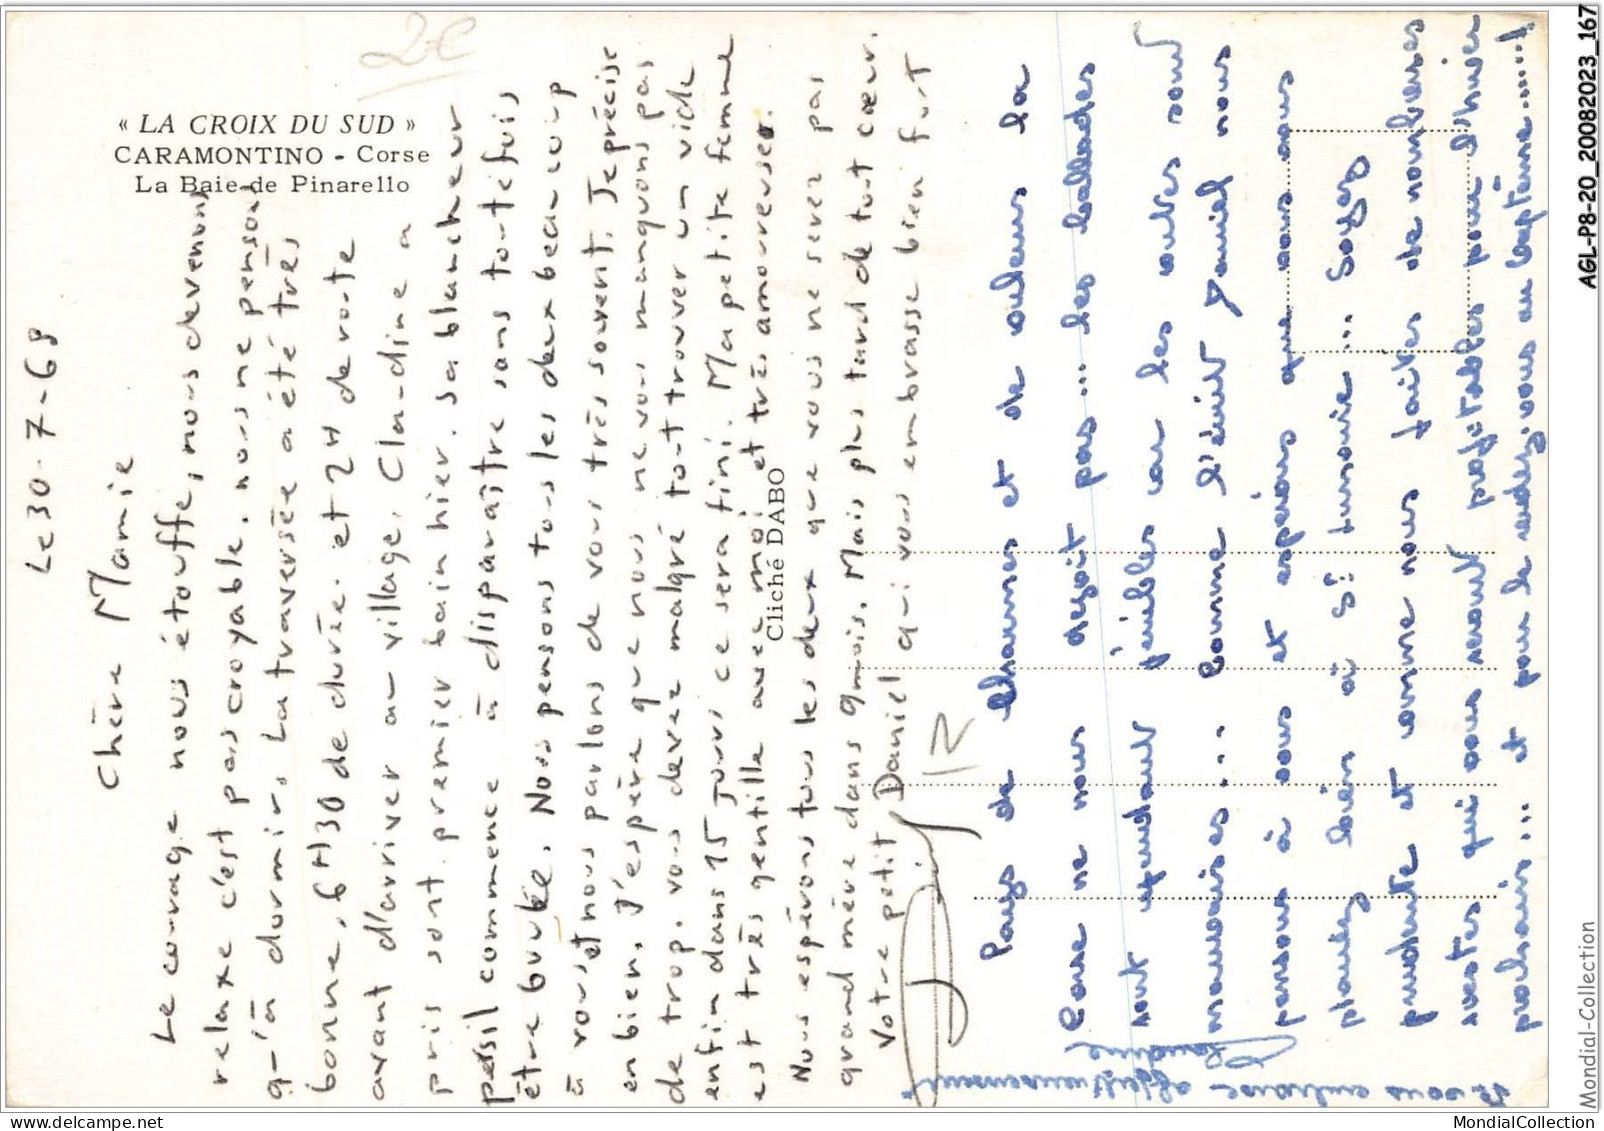 « LA CROIX DU SUD »
CARAMONTINO - Corse
La Baie de Pinarello
2€
Cliché DABO
Le 30-7-68
Chère Mamie
Le courage nous étouffe, nous devenons
relaxe c'est pas croyable. nous ne pensons
qu'à dormir. La traversée a été très
bonne, 6H30 de durée. et 2H de route
avant d'arriver au village. Claudine a
pris sont premier bain hier. sa blancheur
persil commence à disparaître sans toutefois
être boukée. Nous pensons tous les deux beaucoup
à vous et nous parlons de vous très souvent. Je précise
en bien. J'espère que nous ne vous manquons pas
de trop. vous devez malgré tout trouver un vide
enfin dans 15 jours ce sera fini. Ma petite femme
est très gentille avec moi et très amoureuse.
Nous espérons tous les deux que vous ne serez pas
grand mère dans 9 mois. Mais plus tard de tout cœur.
Votre petit Daniel qui vous embrasse bien fort
Daniel
12
Pays de charmes et de couleurs la
Corse ne nous deçoit pas... les ballades
sont cependant pénibles car les routes sont
mauvaises... Comme l'écrit Daniel nous
pensons à vous et espérons que vous vous
plaisez bien à St Junomie... Soyez
prudente et comme nous faites de nombreuses
siestes qui vous seront profitables pour l'hiver
prochain... et pour le rendez-vous au baptême.....!
Je vous embrasse affectueusement
Claudine
AGL-P8-20_20082023_167
Mondial-Collection
MondialCollection